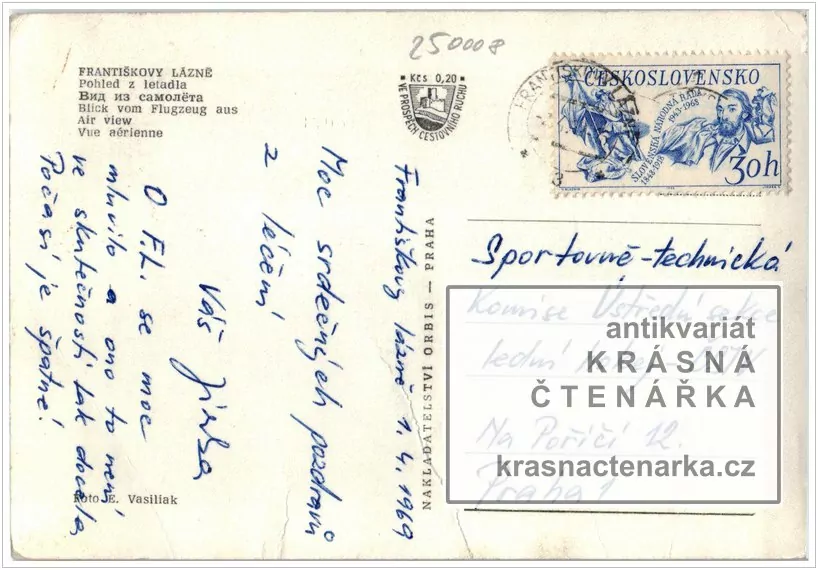 250008
FRANTIŠKOVY LÁZNĚ
Pohled z letadla
Вид из самолёта
Blick vom Flugzeug aus
Air view
Vue aérienne
Kčs 0,20
VE PROSPĚCH CESTOVNÍHO RUCHU
ČESKOSLOVENSKO
SLOVENSKÁ NÁRODNÁ RADA
1848-1918
1943-1968
30h
Františkovy lázně 1. 4. 1969
Moc srdečných pozdravů
z léčení
Váš Jirka
O F.L. se moc
mluvilo a ono to není
ve skutečnosti tak docela,
Počasí je špatné!
NAKLADATELSTVÍ ORBIS — PRAHA
Foto E. Vasiliak
Sportovně-technická
Komise Ústřední sekce
lední hokej ČSTV
Na Poříčí 12.
Praha 1
antikvariát
KRÁSNÁ
ČTENÁŘKA
krasnactenarka.cz